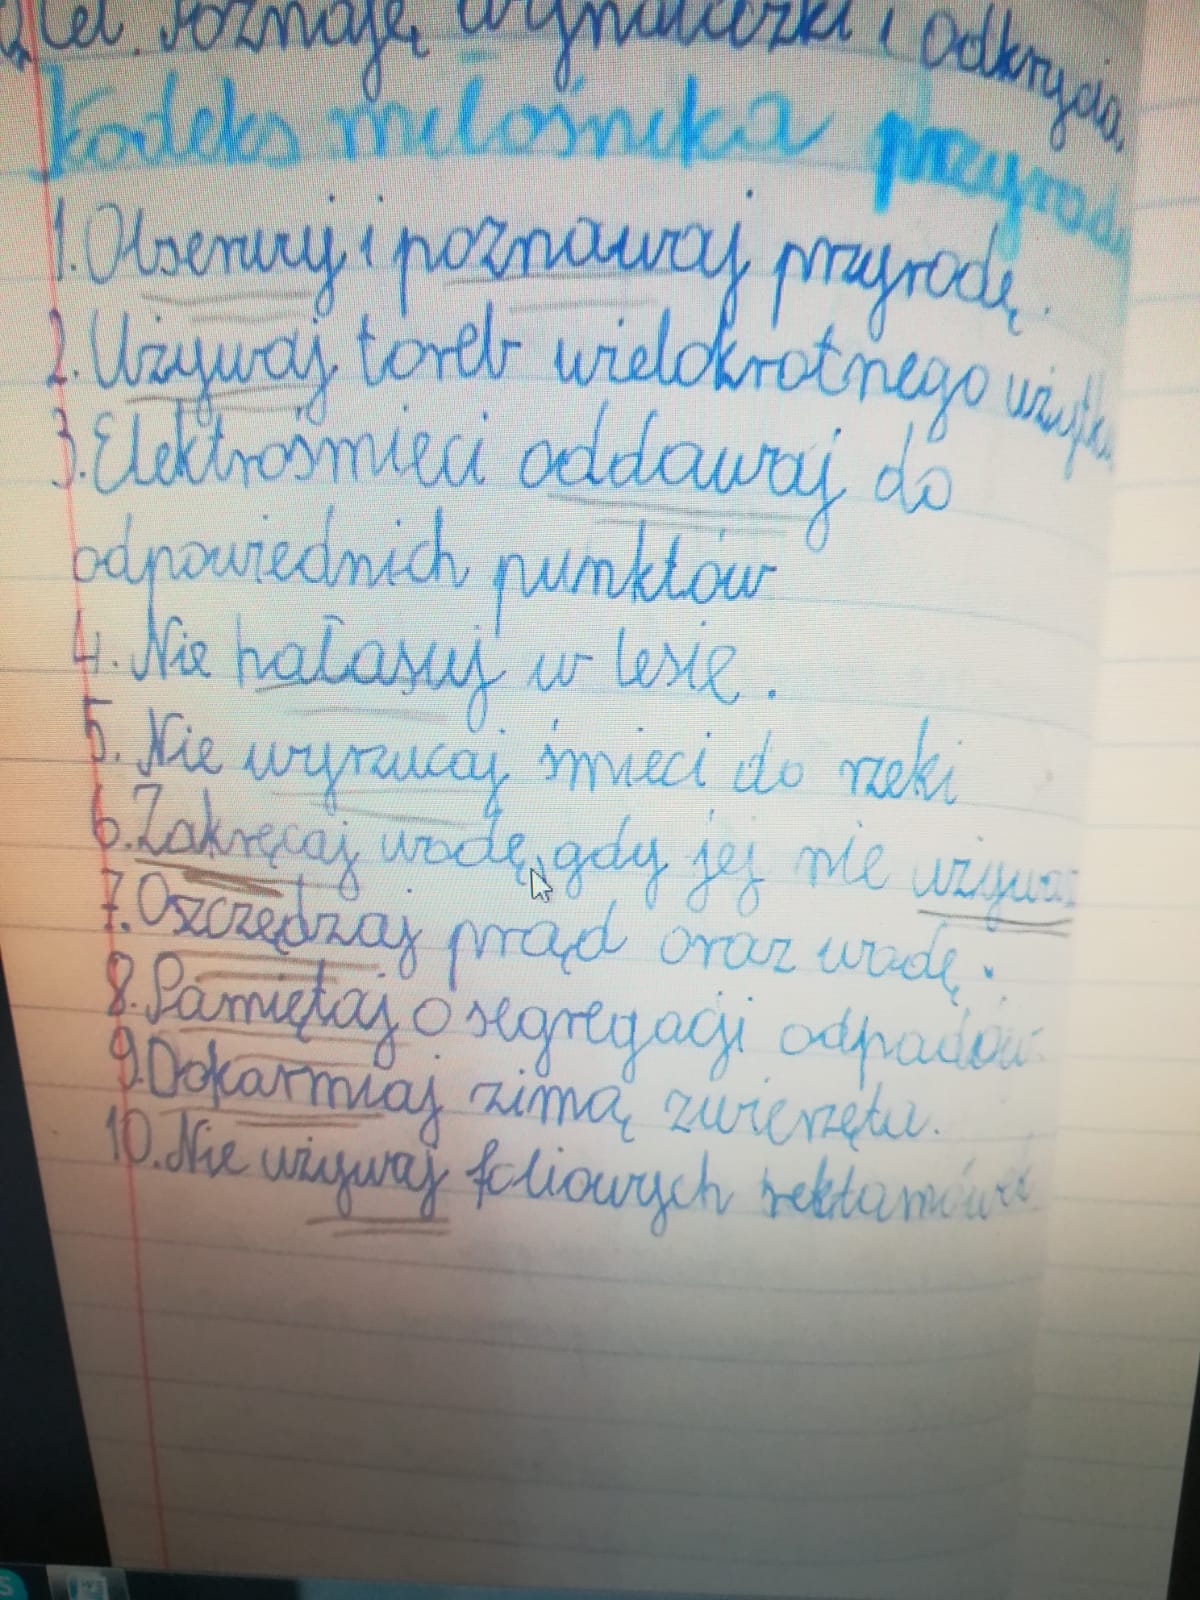 Cel. Poznaję wynalazki i odkrycia,
Kodeks miłośnika przyrody
1. Obserwuj i poznawaj przyrodę.
2. Używaj toreb wielokrotnego użytku
3. Elektrośmieci oddawaj do
odpowiednich punktów
4. Nie hałasuj w lesie.
5. Nie wyrzucaj śmieci do rzeki
6. Zakręcaj wodę, gdy jej nie używasz
7. Oszczędzaj prąd oraz wodę.
8. Pamiętaj o segregacji odpadów
9. Dokarmiaj zimą zwierzęta.
10. Nie używaj foliowych reklamówek